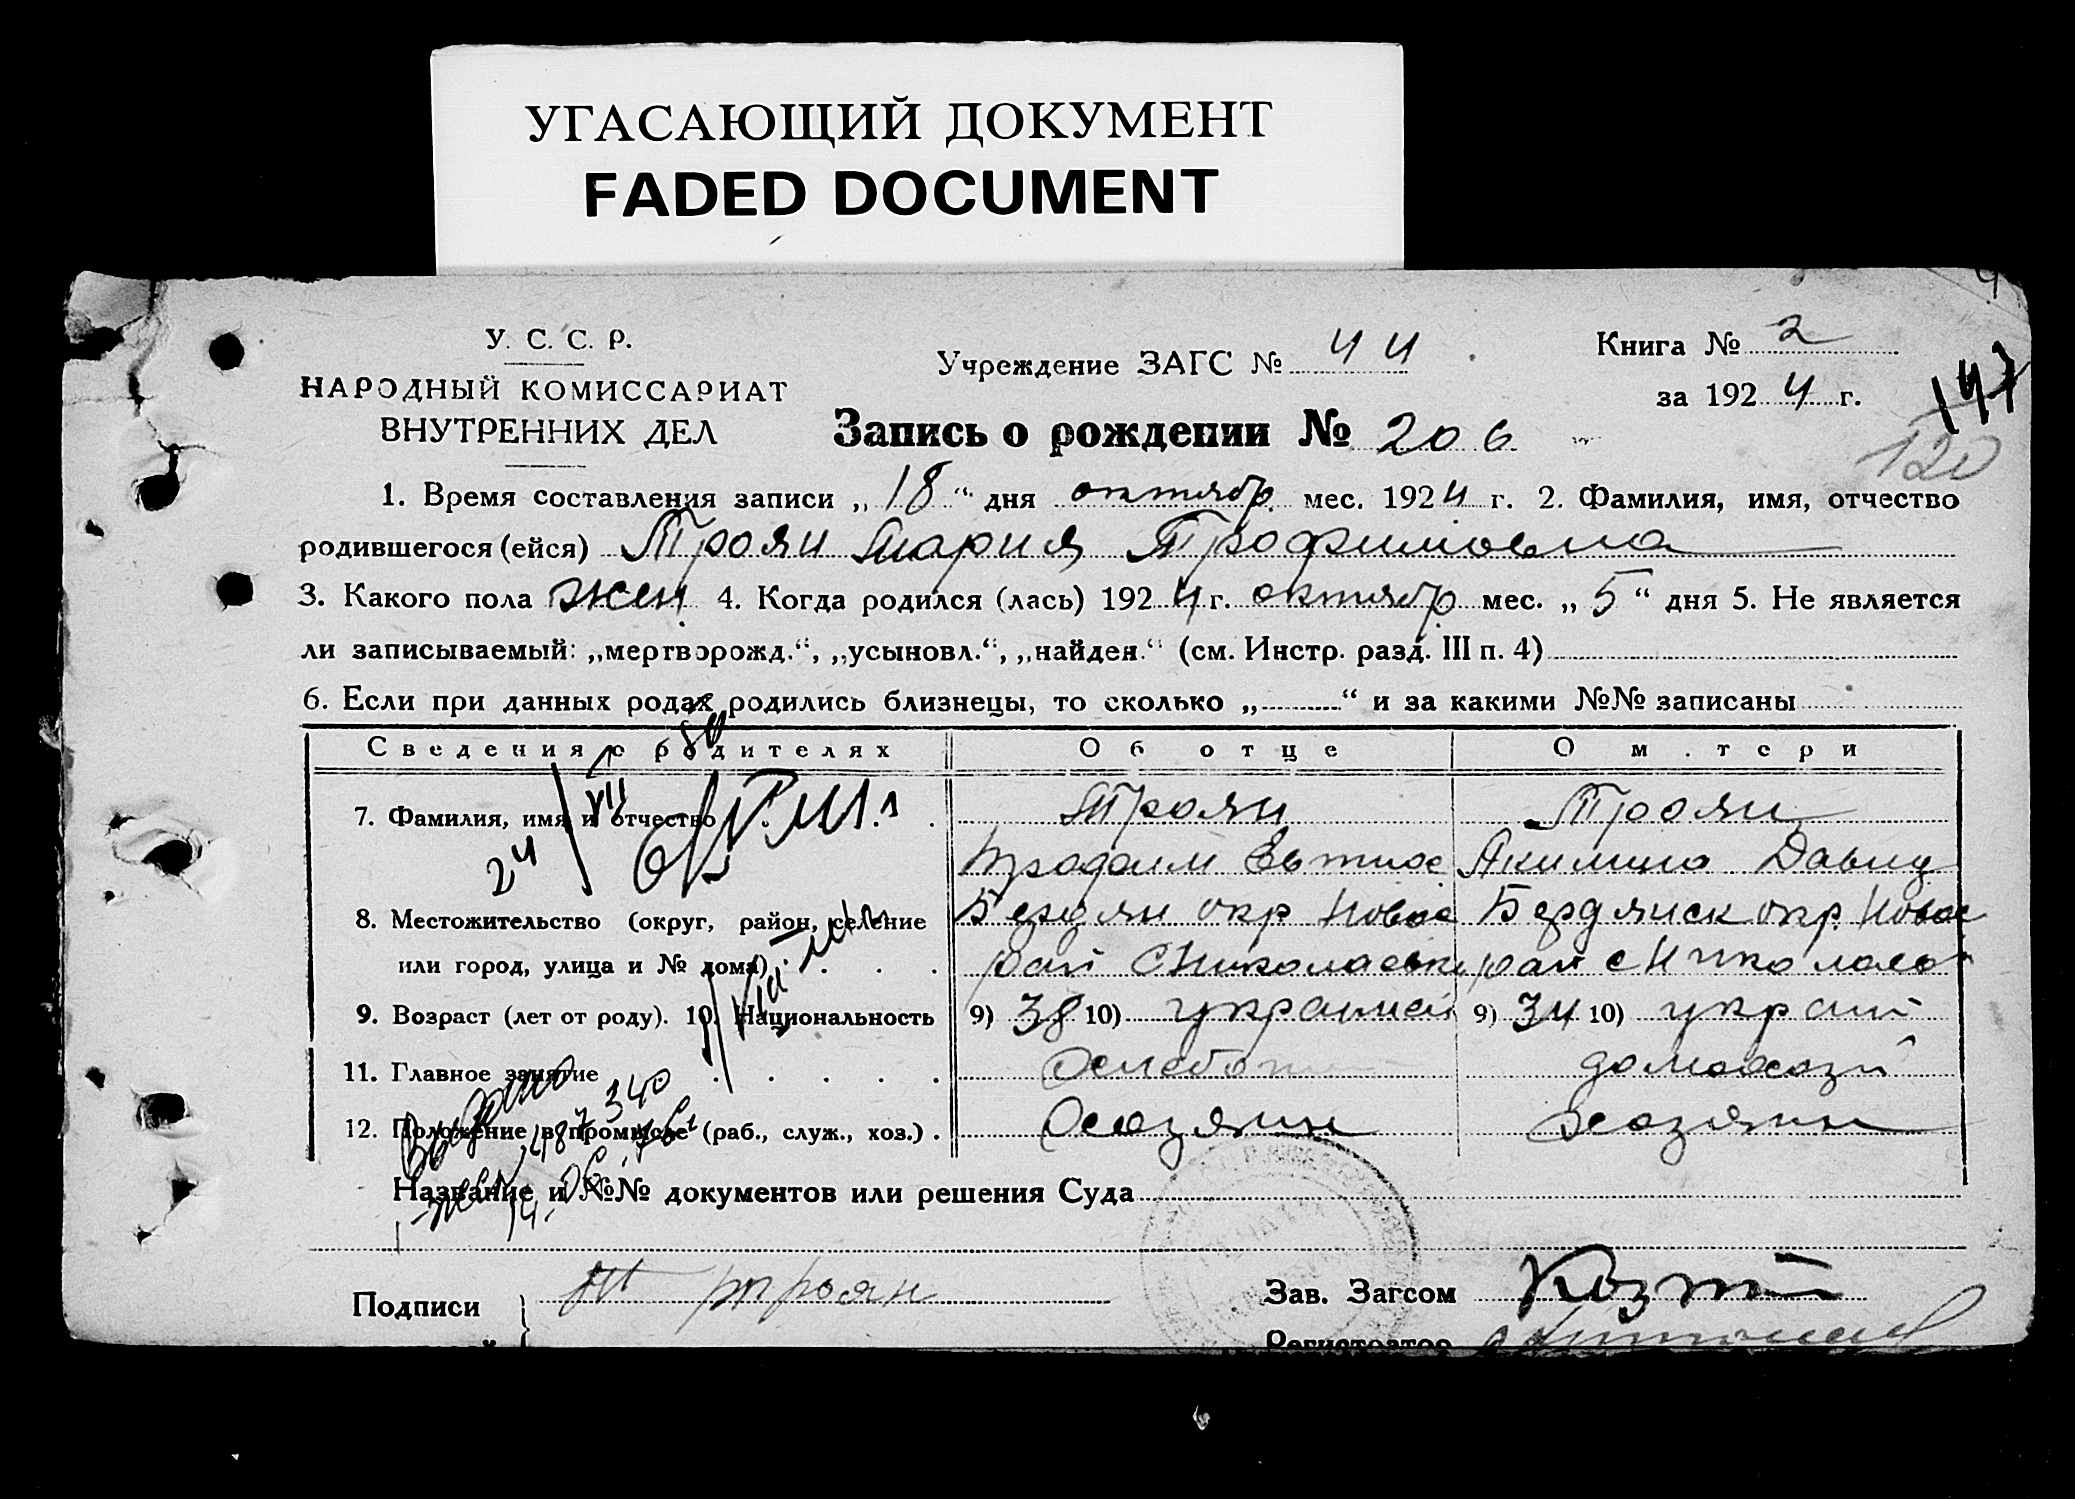 УГАСАЮЩИЙ ДОКУМЕНТ
FADED DOCUMENT
У. С. С. Р.
НАРОДНЫЙ КОМИССАРИАТ
ВНУТРЕННИХ ДЕЛ
Учреждение ЗАГС № 44
Книга № 2
за 1924 г.
147
120
Запись о рождении № 206
1. Время составления записи „18“ дня октябр мес. 1924 г. 2. Фамилия, имя, отчество
родившегося (ейся) Троян Мария Трофимовна
3. Какого пола жен 4. Когда родился (лась) 1924 г. октябр мес. „5“ дня 5. Не является
ли записываемый: „мертворожд.“, „усыновл.“, „найден.“ (см. Инстр. разд. III п. 4)
6. Если при данных родах родились близнецы, то сколько „ “ и за какими №№ записаны
Сведения о родителях Об отце О матери
7. Фамилия, имя и отчество Троян Троян
Трофим Евтихи Акилина Давид
8. Местожительство (округ, район, селение Бердян окр Новос Бердянск окр. Новос
или город, улица и № дома) рай С Николаевк рай с Николаев
9. Возраст (лет от роду). 10. Национальность 9) 38 10) украинец 9) 34 10) украин
11. Главное занятие Хлебо домохозя
12. Положение в промысле (раб., служ., хоз.) Хозяин Хозяин
Название и №№ документов или решения Суда
Подписи Троян Зав. Загсом
Регистратор